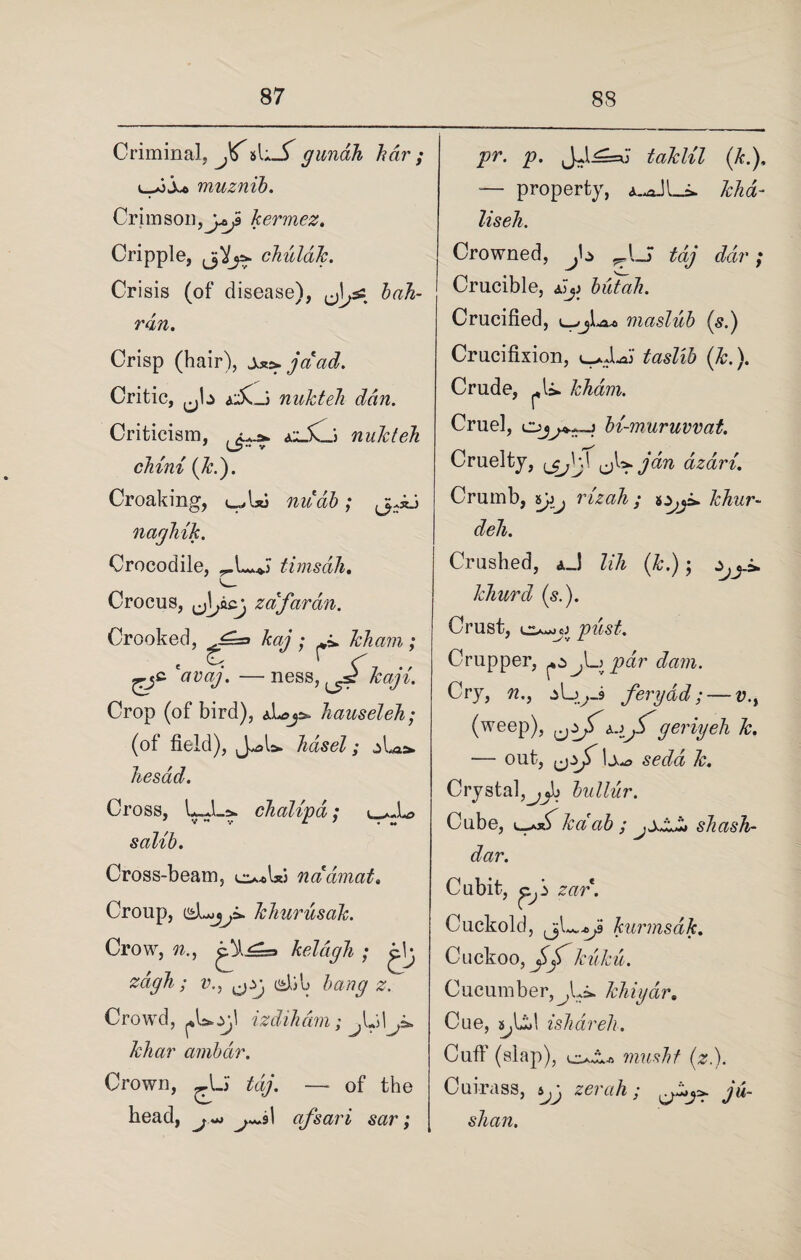 87
88
Criminal, گناه کار gunáh kár ;
مذنب muznib.
Crimson, قرمز kermez.
Cripple, چولاق chúlák.
Crisis (of disease), بحران bah-
rán.
Crisp (hair), جعد ja'ad.
Critic, نکته دان nukteh dán.
Criticism, نکته چینی nukteh
chíní (k.).
Croaking, نعاب nu'áb ; نغیق
naghík.
Crocodile, تمساح timsáh.
Crocus, زعفران za'farán.
Crooked, کج kaj ; خم kham ;
عوج 'avaj. — ness, کجی kají.
Crop (of bird), حوصله hauseleh ;
(of field), حاصل hásel ; حصاد
hesád.
Cross, چلیپا chalípá ; صلیب
salíb.
Cross-beam, نعامت na'ámat.
Croup, خروسك khurúsak.
Crow, n., کلاغ kelágh ; زاغ
zágh ; v., بانك زدن bang z.
Crowd, ازدحام izdihám ; خرانبار
khar ambár.
Crown, تاج táj. — of the
head, افسر سر afsari sar ;
pr. p. تکلیل taklíl (k.).
— property, خالصه khá-
liseh.
Crowned, تاج دار táj dár ;
Crucible, بوته bútah.
Crucified, مصلوب maslúb (s.)
Crucifixion, تصلیب taslíb (k.).
Crude, خام khám.
Cruel, بیمروت bí-muruvvat.
Cruelty, جان آزاری ján ázárí.
Crumb, ریزه rízah ; خورده khur-
deh.
Crushed, له lih (k.) ; خورد
khurd (s.).
Crust, پوست púst.
Crupper, پار دم pár dam.
Cry, n., فریاد feryád ; — v.,
(weep), گریه کردن geriyeh k.
— out, صدا کردن sedá k.
Crystal, بلور bullúr.
Cube, کعب ka'ab ; ششدر shash-
dar.
Cubit, ذرع zar'.
Cuckold, قرمساق kurmsák.
Cuckoo, کوکو kúkú.
Cucumber, خیار khiyár.
Cue, اشاره isháreh.
Cuff (slap), مشت musht (z.).
Cuirass, زره zerah ; جوشن jú-
shan.